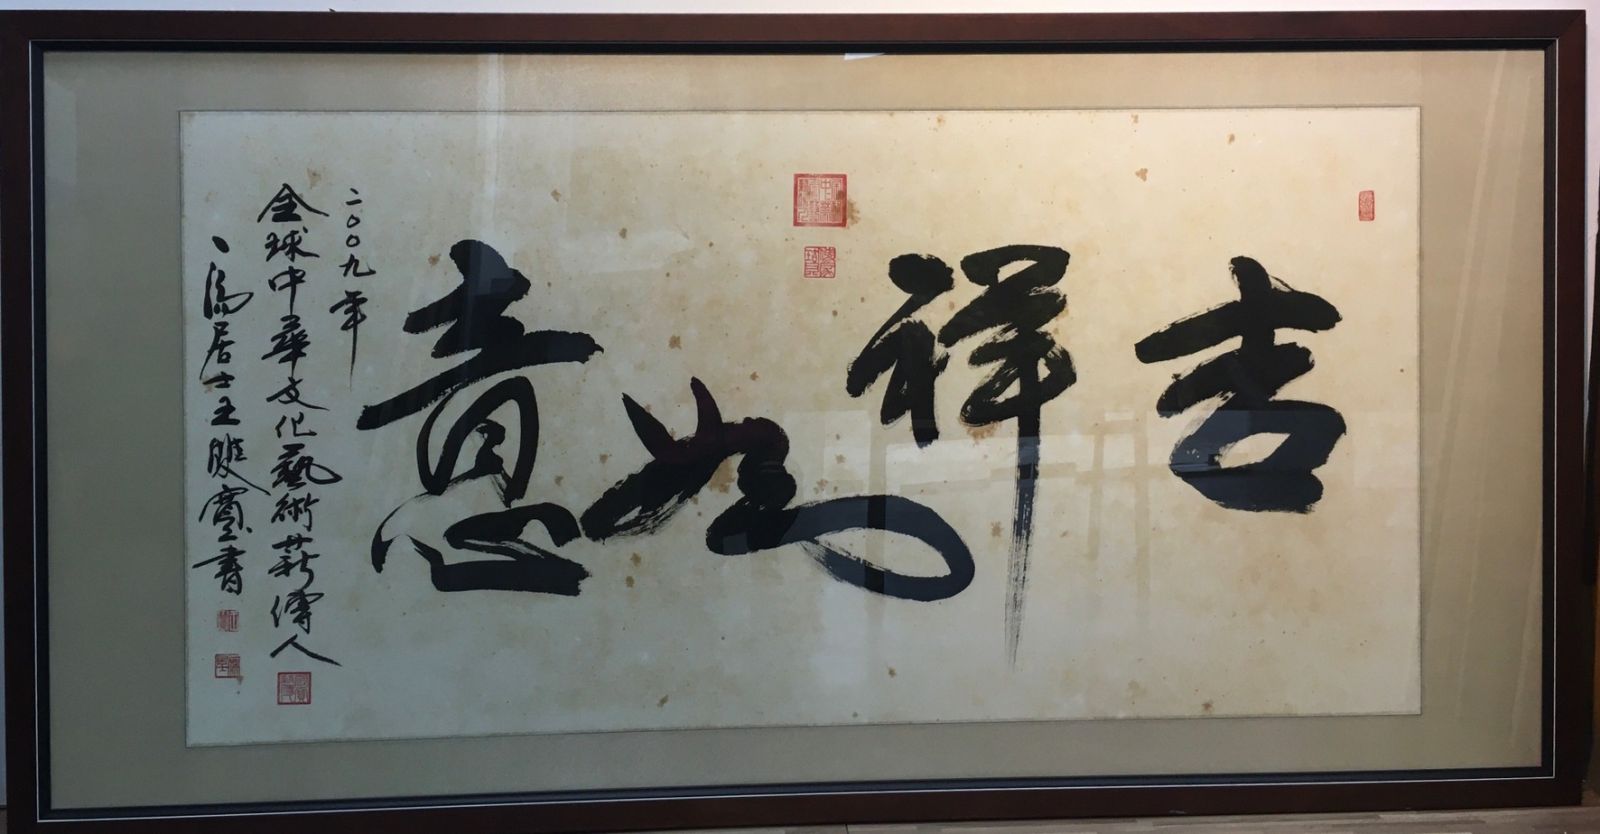 吉祥如意
二〇〇九年
全球中華文化藝術薪傳人
居士王雙寬書